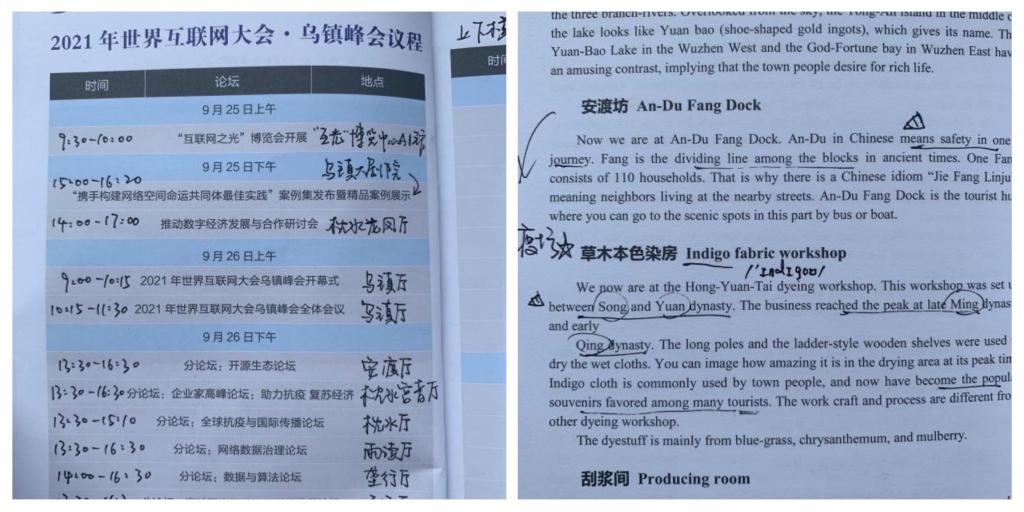 2021年世界互联网大会·乌镇峰会议程
时间 论坛 地点
9月25日上午
9:30-10:00 “互联网之光”博览会开展
9月25日下午
15:00-16:20
“携手构建网络空间命运共同体最佳实践”案例集发布暨精品案例展示
14:00-17:00 推动数字经济发展与合作研讨会 枕水龙凤厅
9月26日上午
9:00-10:15 2021年世界互联网大会乌镇峰会开幕式 乌镇厅
10:15-11:30 2021年世界互联网大会乌镇峰会全体会议 乌镇厅
9月26日下午
13:30-16:30 分论坛:开源生态论坛 安渡厅
13:30-16:30 分论坛:企业家高峰论坛:助力抗疫 复苏经济
13:30-15:10 分论坛:全球抗疫与国际传播论坛 枕水厅
13:30-16:30 分论坛:网络数据治理论坛 雨读厅
14:00-16:30 分论坛:数据与算法论坛 垄行厅
上下
时
the three branch-rivers. Overlooked from the sky, the Yong-An island in the middle
the lake looks like Yuan bao (shoe-shaped gold ingots), which gives its name. Th
Yuan-Bao Lake in the Wuzhen West and the God-Fortune bay in Wuzhen East hav
an amusing contrast, implying that the town people desire for rich life.
安渡坊 An-Du Fang Dock
Now we are at An-Du Fang Dock. An-Du in Chinese means safety in one
journey. Fang is the dividing line among the blocks in ancient times. One Fan
consists of 110 households. That is why there is a Chinese idiom “Jie Fang Linju
meaning neighbors living at the nearby streets. An-Du Fang Dock is the tourist hu
where you can go to the scenic spots in this part by bus or boat.
草木本色染房 Indigo fabric workshop
/'Indigoʊ/
We now are at the Hong-Yuan-Tai dyeing workshop. This workshop was set u
between Song and Yuan dynasty. The business reached the peak at late Ming dynas
and early
Qing dynasty. The long poles and the ladder-style wooden shelves were used
dry the wet cloths. You can image how amazing it is in the drying area at its peak tim
Indigo cloth is commonly used by town people, and now have become the popul
souvenirs favored among many tourists. The work craft and process are different fro
other dyeing workshop.
The dyestuff is mainly from blue-grass, chrysanthemum, and mulberry.
刮浆间 Producing room